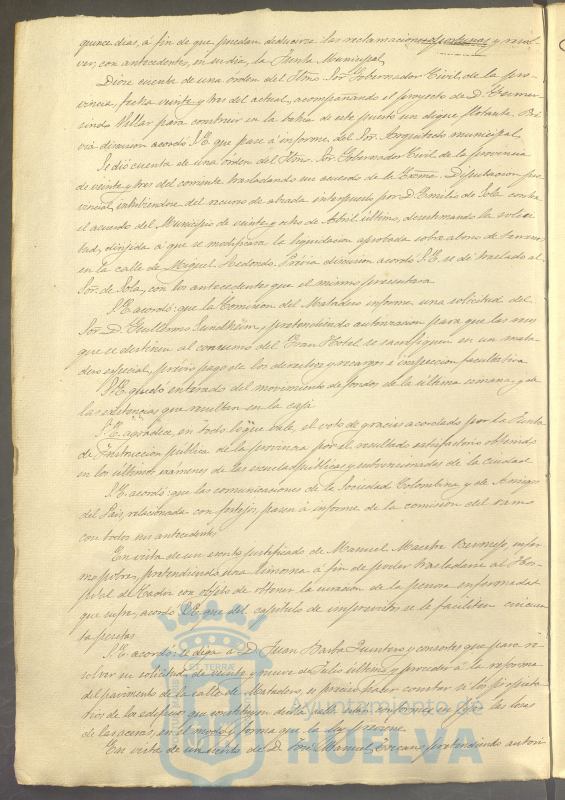 quince dias, á fin de que puedan deducirse las reclamaciones y resol-
ver, con antecedentes, en su dia, la Junta Municipal.
Diose cuenta de una orden del Iltmo. Sor. Gobernador Civil de la pro-
vincia, fecha veinte y tres del actual, acompañando el proyecto de D. Gumer-
sindo Villar para construir en la bahia de este puerto un dique flotante. Pré-
via discusion acordó S.E. que pase á informe del Sor. Arquitecto municipal.
Se dió cuenta de una orden del Iltmo. Sor. Gobernador Civil de la provincia
de veinte y tres del corriente trasladando un acuerdo de la Excma. Diputacion pro-
vincial, inhibiendose del recurso de alzada interpuesto por D. Emilio de Sola contra
el acuerdo del Municipio de veinte y ocho de Abril último, desestimando la solici-
tud, dirijida á que se modificara la liquidacion aprobada sobre abono de terrenos
en la calle de Miguel Redondo. Prévia discusion acordó S.E. se dé traslado al
Sor. de Sola, con los antecedentes que el mismo presentara.
S.E. acordó: que la Comision del Matadero informe una solicitud del
Sor. D. Guillermo Sundheim, pretendiendo autorizacion para que las reses
que se destinen al consumo del Gran Hotel se sacrifiquen en un mata-
dero especial, prévio pago de los derechos y recargos é inspeccion facultativa.
S.E. quedó enterado del movimiento de fondos de la última semana, y de
las existencias que resultan en la caja.
S.E. agradece, en todo lo que vale, el voto de gracias acordado por la Junta
de Instruccion pública de la provincia por el resultado satisfactorio obtenido
en los últimos exámenes de las escuelas públicas y subvencionadas de la Ciudad.
S.E. acordó: que las comunicaciones de la Sociedad Colombina y de Amigos
del Pais, relacionadas con festejos, pasen á informe de la comision del ramo
con todos sus antecedentes.
En vista de un escrito justificado de Manuel Maestre Bermejo, enfer-
mo pobre, pretendiendo una limosna á fin de poder trasladarse al Hos-
pital de Cadiz con objeto de obtener la curacion de la penosa enfermedad
que sufre, acordó S.E. que del capitulo de imprevistos se le faciliten cincuen-
ta pesetas.
S.E. acordó: se diga á D. Juan Barba Quintero y consortes que para re-
solver su solicitud de veinte y nueve de Julio último, y proceder á la reforma
del pavimento de la calle de Matadero, es preciso hacer constar si los propieta-
rios de los edificios que constituyen dicha calle estan conformes en pagar las losas
de las aceras, en el modo y forma que la ley previene.
En vista de un escrito de D. José Manuel pretendiendo autori-
ET TERRÆ
Ayuntamiento de
HUELVA